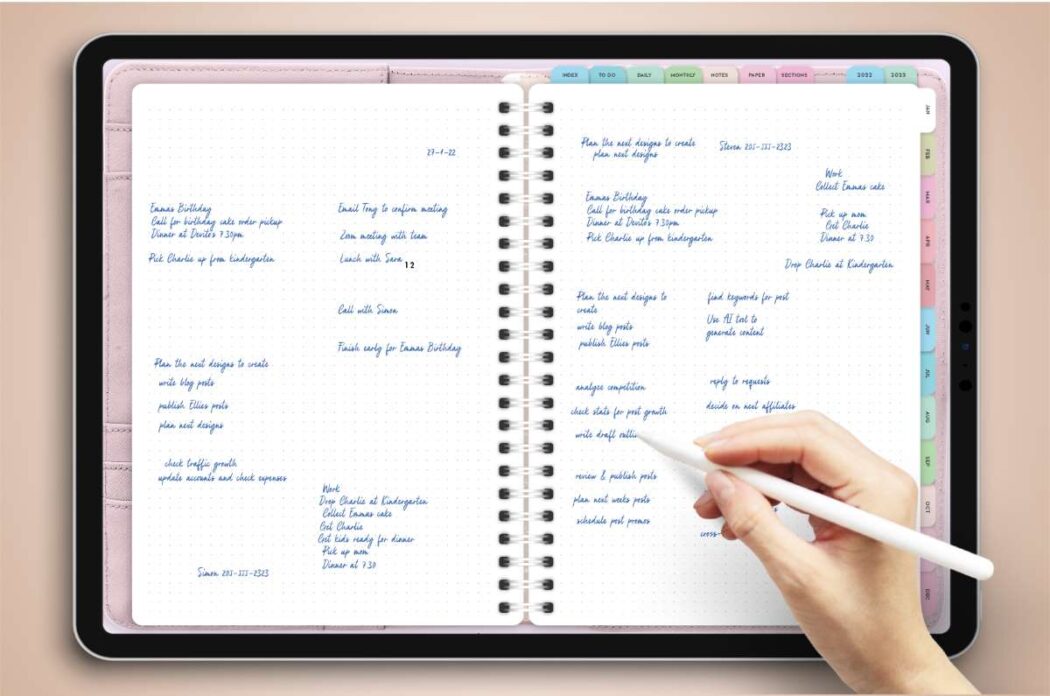 INDEX
TO DO
DAILY
MONTHLY
NOTES
PAPER
SECTIONS
2022
2023
JAN
FEB
MAR
APR
MAY
JUN
JUL
AUG
SEP
OCT
DEC
27-1-22
Emmas Birthday
Call for birthday cake order pickup
Dinner at Devito's 7.30pm
Pick Charlie up from kindergarten
Email Tony to confirm meeting
Zoom meeting with team
Lunch with Sara 12
Call with Simon
Finish early for Emmas Birthday
Plan the next designs to create
write blog posts
publish Ellies posts
plan next designs
check traffic growth
update accounts and check expenses
Work
Drop Charlie at Kindergarten
Collect Emmas cake
Get Charlie
Get kids ready for dinner
Pick up mom
Dinner at 7.30
Simon 201-111-2323
Plan the next designs to create
plan next designs
Steven 201-111-2323
Work
Collect Emmas cake
Pick up mom
Get Charlie
Dinner at 7.30
Emmas Birthday
Call for birthday cake order pickup
Dinner at Devito's 7.30pm
Pick Charlie up from kindergarten
Drop Charlie at Kindergarten
Plan the next designs to
create
write blog posts
publish Ellies posts
find keywords for post
Use AI tool to
generate content
analyze competition
check stats for post growth
write draft outli
reply to requests
decide on next affiliates
review & publish posts
plan next weeks posts
schedule post promos
cross-